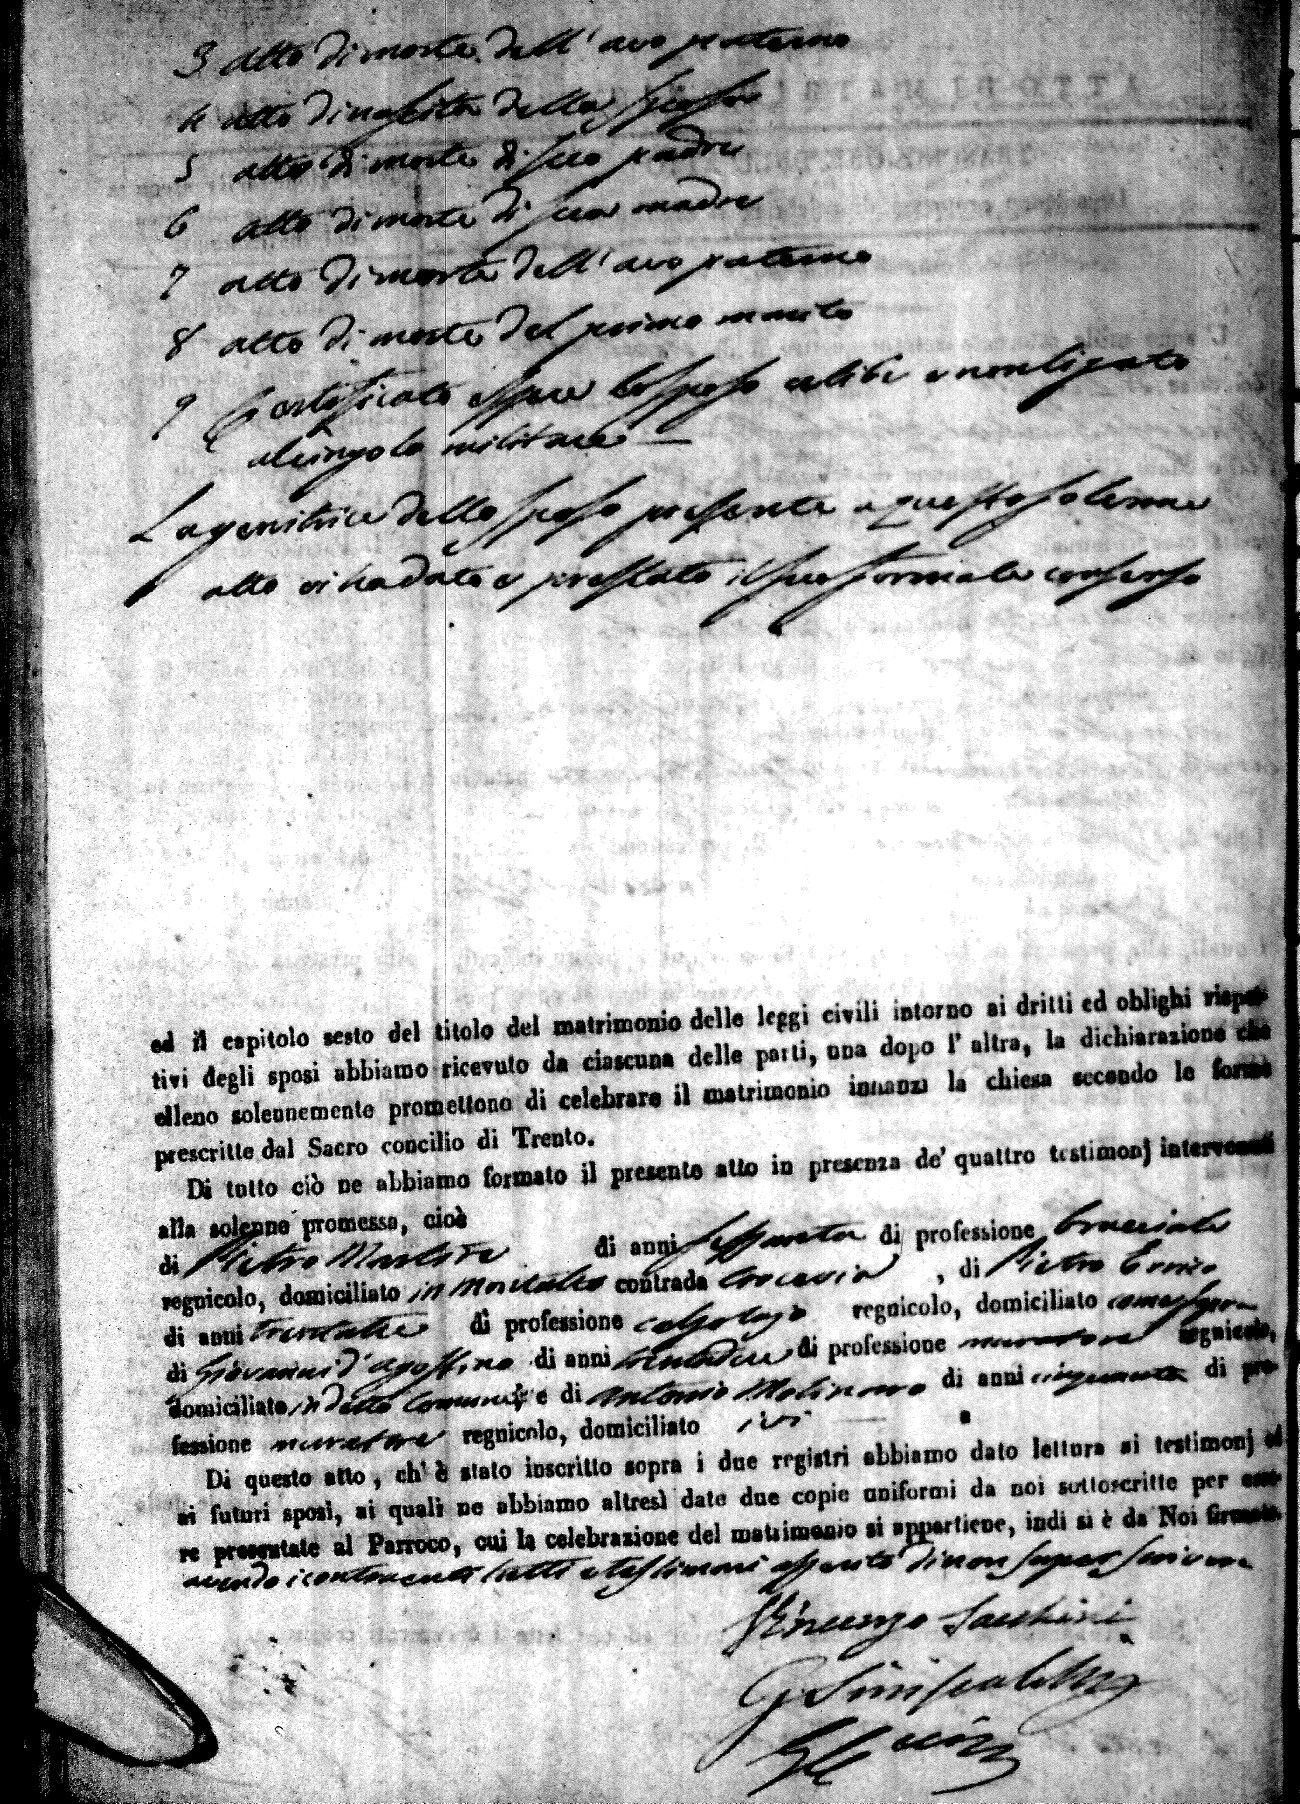 3 atto di morte dell'avo paterno
4 atto di nascita della sposa
5 atto di morte di suo padre
6 atto di morte di sua madre
7 atto di morte dell'avo paterno
8 atto di morte del primo marito
9 Certificato essere lo sposo celibe e non ligato
al cingolo militare —
La genitrice dello sposo presente a questo solenne
atto vi ha dato e prestato il suo formale consenso
ed il capitolo sesto del titolo del matrimonio delle leggi civili intorno ai dritti ed oblighi rispet-
tivi degli sposi abbiamo ricevuto da ciascuna delle parti, una dopo l' altra, la dichiarazione che
elleno solennemente promettono di celebrare il matrimonio innanzi la chiesa secondo le forme
prescritte dal Sacro concilio di Trento.
Di tutto ciò ne abbiamo formato il presente atto in presenza de' quattro testimonj intervenuti
alla solenne promessa, cioè
di Pietro di anni settanta di professione bracciale
regnicolo, domiciliato in contrada , di Pietro
di anni trentatre di professione calzolajo regnicolo, domiciliato come sopra
di Giovanni d'agostino di anni di professione muratore regnicolo,
domiciliato in detto Comune e di Antonio Molinaro di anni cinquanta di pro-
fessione muratore regnicolo, domiciliato ivi —
Di questo atto, ch' è stato inscritto sopra i due registri abbiamo dato lettura ai testimonj ed
ai futuri sposi, ai quali ne abbiamo altresì date due copie uniformi da noi sottoscritte per esse-
re presentate al Parroco, cui la celebrazione del matrimonio si appartiene, indi si è da Noi firmato.
avendo i contraenti tutti e testimoni asserito di non saper scrivere
Vincenzo Sacchini
G. Siniscalchi